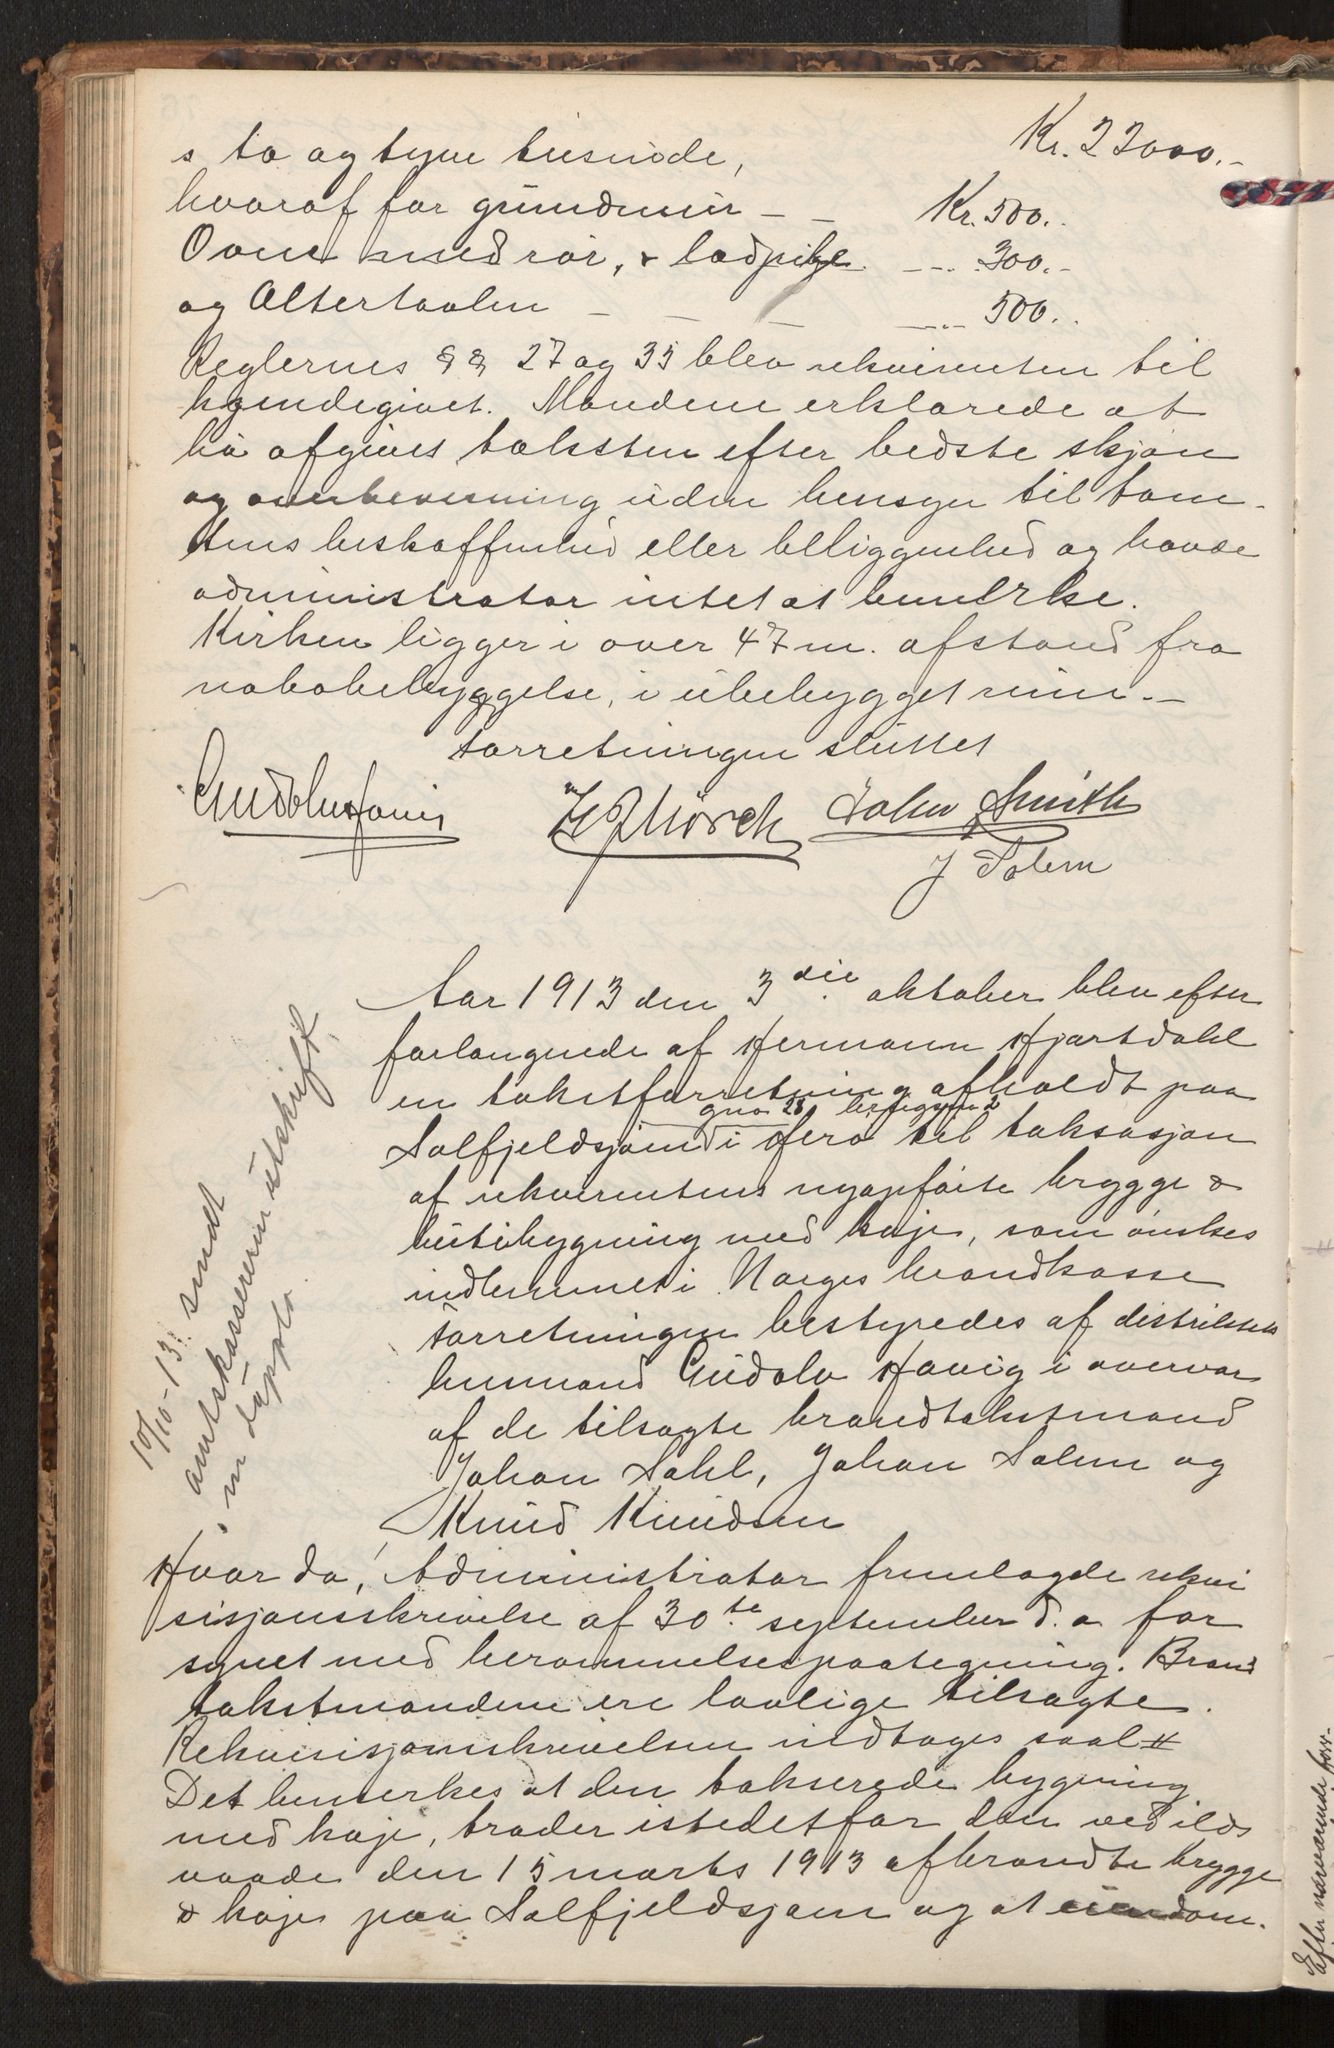 s to og tyve tusinde, Kr. 22000.-
hvoraf for grundmur - - Kr. 500..
Ovne med rør, & lodpibe - - - 300.-
og Altertavlen - - - - 500..
Reglernes §§ 27 og 35 blev rekvirenten til
kjendegivet. Mændene erklærede at
ha afgivet taksten efter bedste skjøn
og overbevisning uden hensyn til tom-
tens beskaffenhed eller beliggenhed og havde
administrator intet at bemerke.
Kirken ligger i over 47 m. afstand fra
nabobebyggelse, i ubebygget
Forretningen sluttet
Gudolv Havig J. Mørch Johan Smith
J Solem
Aar 1913 den 3die oktober blev efter
forlangende af Hermann Hjartdahl
en takstforretning afholdt paa
gno 28 brugsno 2
Solfjeldsjøen i Herø til taksasjon
af rekvirentens nyopførte brygge &
butikbygning med kaje, som ønskes
indlemmet i Norges brandkasse
Forretningen bestyredes af distrikts
lensmand Gudolv Havig i overvær
af de tilsagte brandtakstmænd
Johan Dahl, Johan Solem og
Knud Knudsen
10/10-13. sendt
amtskassereren utskrift
in duplo.
Hvor da, Administrator fremlagde rekvi
sisjonsskrivelse af 30te september d.a for
synet med berammelsespaategning. Brand
takstmændene ere lovlige tilsagte.
Rekvisisjonsskrivelsen indtages saal #
Det bemerkes at den takserede bygning
med kaje, træder istedetfor den ved ilds
vaade den 15 marts 1913 afbrændte brygge
& kaje paa Solfjeldsjøen og at eiendom-
Efter nærværende for-